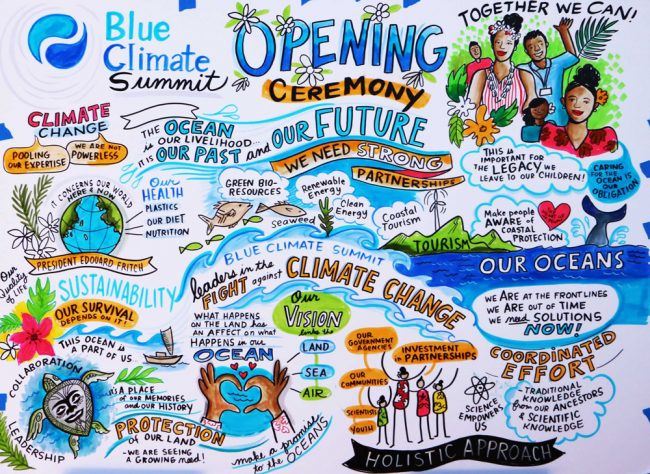 Blue
Climate
Summit
OPENING
CEREMONY
TOGETHER WE CAN!
CLIMATE
CHANGE
POOLING
OUR EXPERTISE
WE ARE NOT
POWERLESS
THE OCEAN
IS OUR LIVELIHOOD...
IT IS OUR PAST and OUR FUTURE
WE NEED STRONG
PARTNERSHIPS
THIS IS
IMPORTANT FOR
THE LEGACY WE
LEAVE TO OUR CHILDREN!
CARING
FOR THE
OCEAN IS
OUR
OBLIGATION
IT CONCERNS OUR WORLD
HERE & NOW
PRESIDENT EDOUARD FRITCH
OUR
HEALTH
PLASTICS
OUR DIET
NUTRITION
GREEN BIO-
RESOURCES
Seaweed
Renewable
Energy
Clean
Energy
Coastal
Tourism
TOURISM
Make people
AWARE of
COASTAL
PROTECTION
OUR OCEANS
Our
Quality
of Life
SUSTAINABILITY
OUR SURVIVAL
DEPENDS ON IT!
THIS OCEAN IS
A PART OF US...
BLUE CLIMATE SUMMIT
leaders in the
FIGHT against
CLIMATE CHANGE
WHAT HAPPENS
ON THE LAND HAS
AN AFFECT ON WHAT
HAPPENS IN OUR
OCEAN
Our
VISION
links the
LAND
SEA
AIR
WE ARE AT THE FRONTLINES
WE ARE OUT OF TIME
WE need SOLUTIONS
NOW!
COLLABORATION
LEADERSHIP
it's A PLACE
OF OUR MEMORIES
AND OUR HISTORY
PROTECTION
OF OUR LAND
- WE ARE SEEING
A GROWING need!
make a promise
to the OCEANS
OUR
GOVERNMENT
AGENCIES
INVESTMENT
in PARTNERSHIPS
OUR
COMMUNITIES
SCIENTISTS
YOUTH
SCIENCE
EMPOWERS
US
COORDINATED
EFFORT
- TRADITIONAL
KNOWLEDGE
from OUR ANCESTORS
& SCIENTIFIC
KNOWLEDGE
HOLISTIC APPROACH